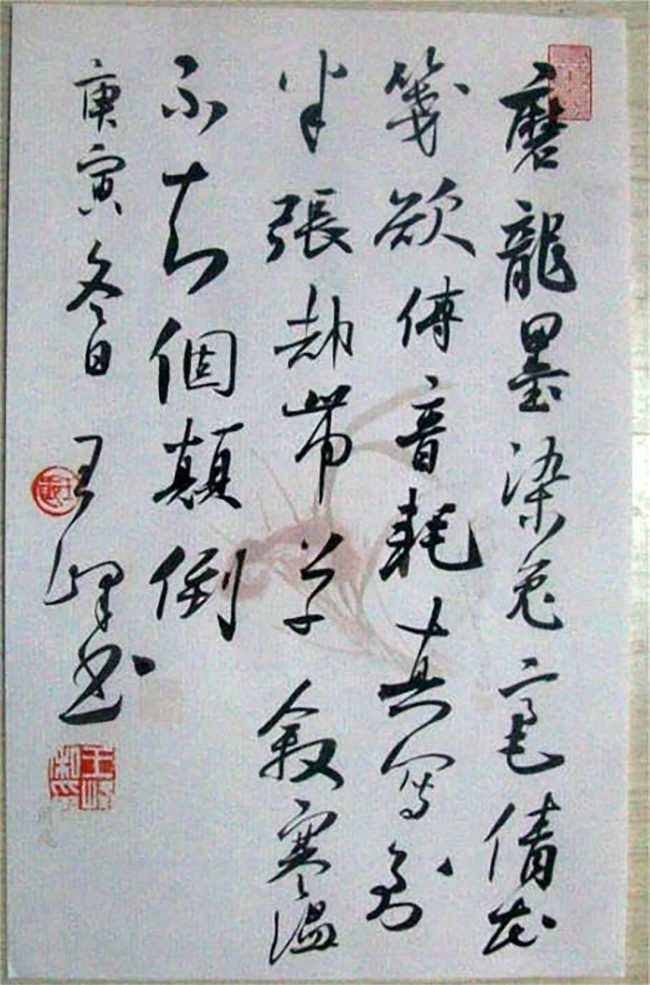 磨龍墨染兔毫倩花
箋欲傳音耗真寫到
半張却帶草敘寒溫
不知個顛倒
庚寅冬日王書